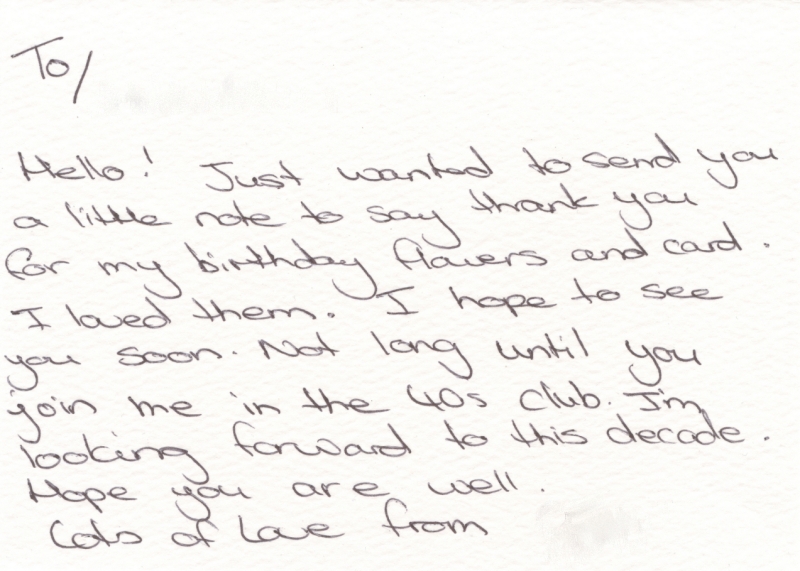 To/
Hello! Just wanted to send you
a little note to say thank you
for my birthday flowers and card.
I loved them. I hope to see
you soon. Not long until you
join me in the 40s club. I'm
looking forward to this decade.
Hope you are well.
Lots of Love from